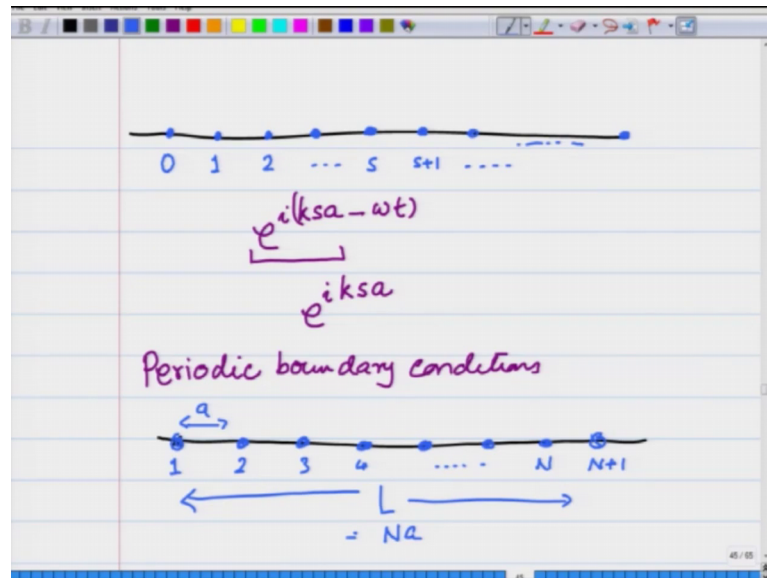 0 1 2 ... s s+1 ....
e^{i(ksa - ωt)}
e^{iksa}
Periodic boundary conditions
a
1 2 3 4 ..... N N+1
L
= Na
45 / 65